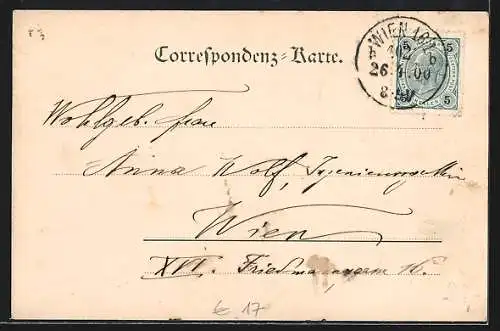 Correspondenz-Karte.
WIEN 10
102 b
26 00
8
5 5
5 5
Wohlgeb. Frau
Anna Wolf, Ingenieursgattin
Wien
XVI. Friedmanngasse 16.
€ 17